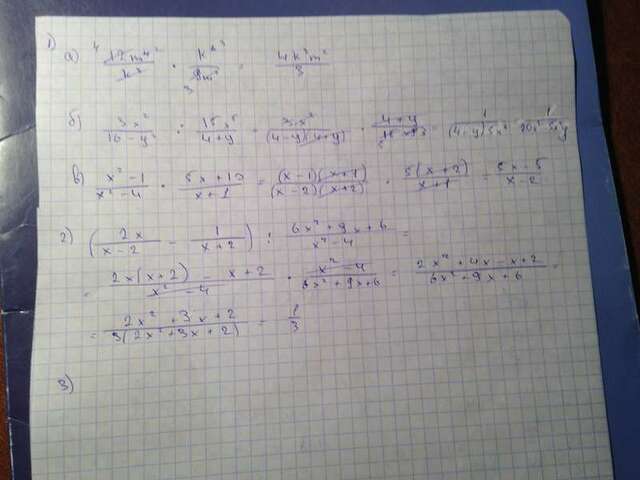 1)
а) 12m⁴/k² · k⁵/9m² = 4k³m²/3
б) 3x²/(16-y²) : 15x⁵/(4+y) = 3x²/((4-y)(4+y)) · (4+y)/15x⁵ = 1/((4-y)5x³)
в) (x²-1)/(x²-4) · (5x+10)/(x+1) = (x-1)(x+1)/((x-2)(x+2)) · 5(x+2)/(x+1) = (5x-5)/(x-2)
2) (2x/(x-2) - 1/(x+2)) : (6x²+9x+6)/(x²-4) =
= (2x(x+2) - x+2)/(x²-4) · (x²-4)/(6x²+9x+6) = (2x²+4x-x+2)/(6x²+9x+6) =
= (2x²+3x+2)/(3(2x²+3x+2)) = 1/3
3)